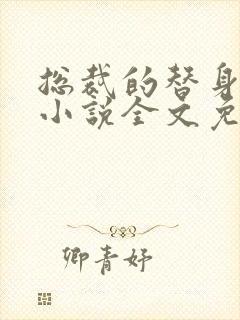 总裁的替身
小说全文免
卿青妤